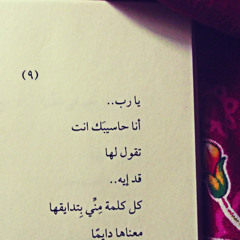 (٩)
يا رب..
أنا حاسيبَك انت
تقول لها
قد إيه..
كل كلمة مِنِّي بِتدايقها
معناها دايمًا